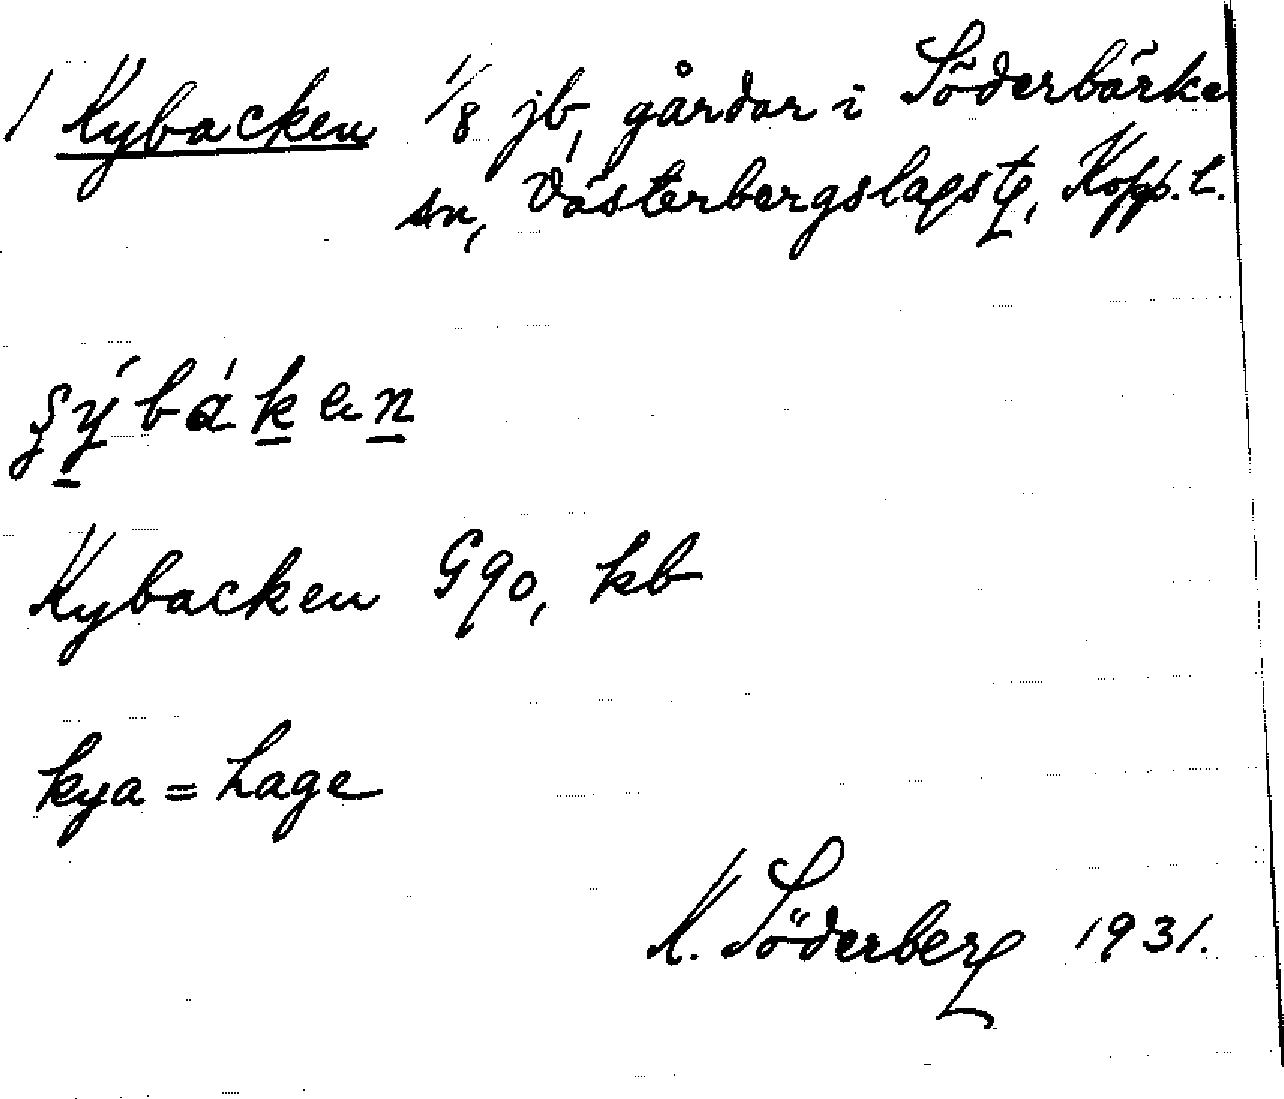 1 Kybacken 1/8 jb, gårdar i Söderbärke
sn, Västerbergslags tg, Kopp. l.
ȿýbákен
Kybacken G90, kb
kya = hage
K. Söderberg 1931.